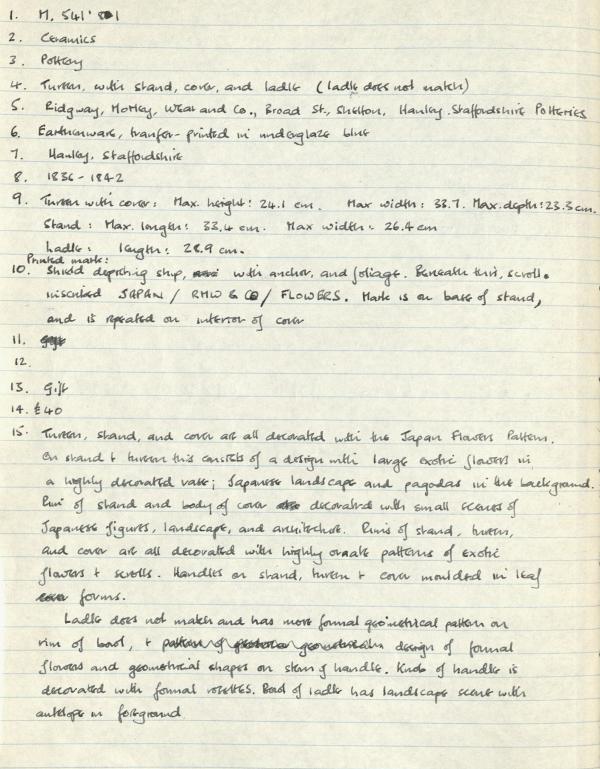 1. M. 541'81
2. Ceramics
3. Pottery
4. Tureen, with stand, cover, and ladle (ladle does not match)
5. Ridgway, Morley, Wear and Co., Broad St., Shelton, Hanley. Staffordshire Potteries
6. Earthenware, tranfer-printed in underglaze blue
7. Hanley, Staffordshire
8. 1836-1842
9. Tureen with cover: Max. height: 24.1 cm. Max width: 33.7. Max. depth: 23.3 cm.
Stand: Max. length: 33.4 cm. Max width: 26.4 cm
Ladle: length: 28.9 cm.
Printed mark:
10. Shield depicting ship, with anchor, and foliage. Beneath this, scroll
inscribed JAPAN / RMW & CO / FLOWERS. Mark is on base of stand,
and is repeated on interior of cover
11.
12.
13. Gift
14. £40
15. Tureen, stand, and cover are all decorated with the Japan Flowers Pattern.
On stand & tureen this consists of a design with large exotic flowers in
a highly decorated vase; Japanese landscape and pagodas in the background.
Rim of stand and body of cover decorated with small scenes of
Japanese figures, landscape, and architecture. Rims of stand, tureen,
and cover are all decorated with highly ornate patterns of exotic
flowers & scrolls. Handles on stand, tureen & cover moulded in leaf
forms.
Ladle does not match and has more formal geometrical pattern on
rim of bowl, & design of formal
flowers and geometrical shapes on stem of handle. Knob of handle is
decorated with formal rosettes. Bowl of ladle has landscape scene with
antelope in foreground